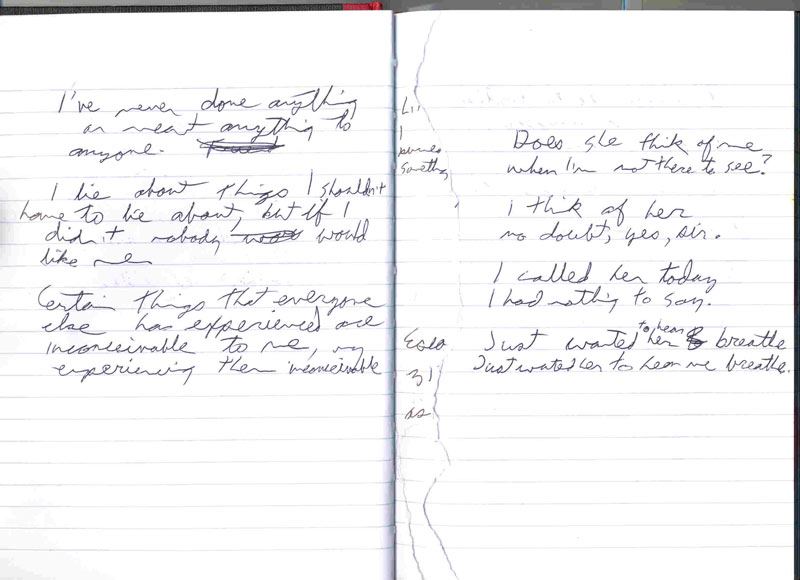 I've never done anything
or meant anything to
anyone.
I lie about things I shouldn't
have to lie about, but if I
didn't nobody would
like me
Certain things that everyone
else has experienced are
inconceivable to me, my
experiencing them inconceivable
I
something
as
Does she thik of me
when I'm not there to see?
I thik of her
no doubt, yes, sir.
I called her today
I had nothing to say.
Just wanted to hear her breathe
Just wated her to hear me breathe.